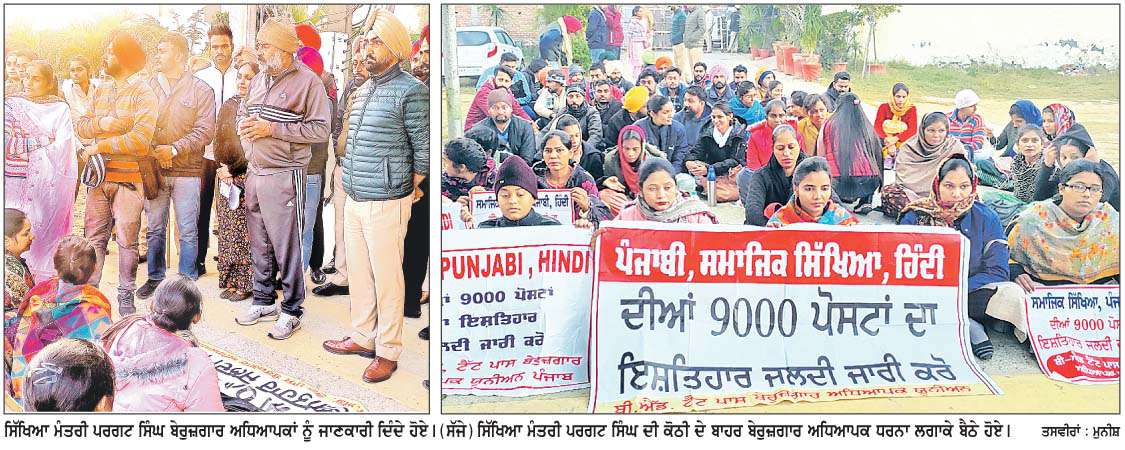 PUNJABI, HINDI
9000 ਪੋਸਟਾਂ
ਦਾ ਇਸ਼ਤਿਹਾਰ
ਜਲਦੀ ਜਾਰੀ ਕਰੋ
ਬੇਰੁਜ਼ਗਾਰ
ਅਧਿਆਪਕ ਯੂਨੀਅਨ ਪੰਜਾਬ
ਸਮਾਜਿਕ ਸਿੱਖਿਆ, ਹਿੰਦੀ
ਪੰਜਾਬੀ, ਸਮਾਜਿਕ ਸਿੱਖਿਆ, ਹਿੰਦੀ
ਦੀਆਂ 9000 ਪੋਸਟਾਂ ਦਾ
ਇਸ਼ਤਿਹਾਰ ਜਲਦੀ ਜਾਰੀ ਕਰੋ
ਬੀ.ਐੱਡ. ਟੈੱਟ ਪਾਸ ਬੇਰੁਜ਼ਗਾਰ ਅਧਿਆਪਕ ਯੂਨੀਅਨ
ਸਮਾਜਿਕ ਸਿੱਖਿਆ, ਪੰਜਾ
ਦੀਆਂ 9000 ਪੋਸਟਾਂ
ਇਸ਼ਤਿਹਾਰ ਜਲਦੀ ਜਾਰੀ
ਸਿੱਖਿਆ ਮੰਤਰੀ ਪਰਗਟ ਸਿੰਘ ਬੇਰੁਜ਼ਗਾਰ ਅਧਿਆਪਕਾਂ ਨੂੰ ਜਾਣਕਾਰੀ ਦਿੰਦੇ ਹੋਏ। (ਸੱਜੇ) ਸਿੱਖਿਆ ਮੰਤਰੀ ਪਰਗਟ ਸਿੰਘ ਦੀ ਕੋਠੀ ਦੇ ਬਾਹਰ ਬੇਰੁਜ਼ਗਾਰ ਅਧਿਆਪਕ ਧਰਨਾ ਲਗਾਕੇ ਬੈਠੇ ਹੋਏ। ਤਸਵੀਰਾਂ : ਮੁਨੀਸ਼